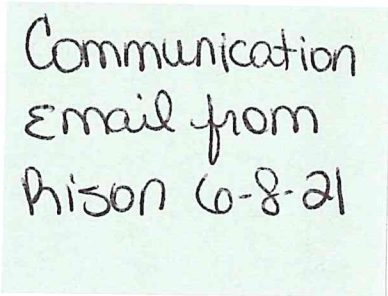 Communication
Email from
Rison 6-8-21